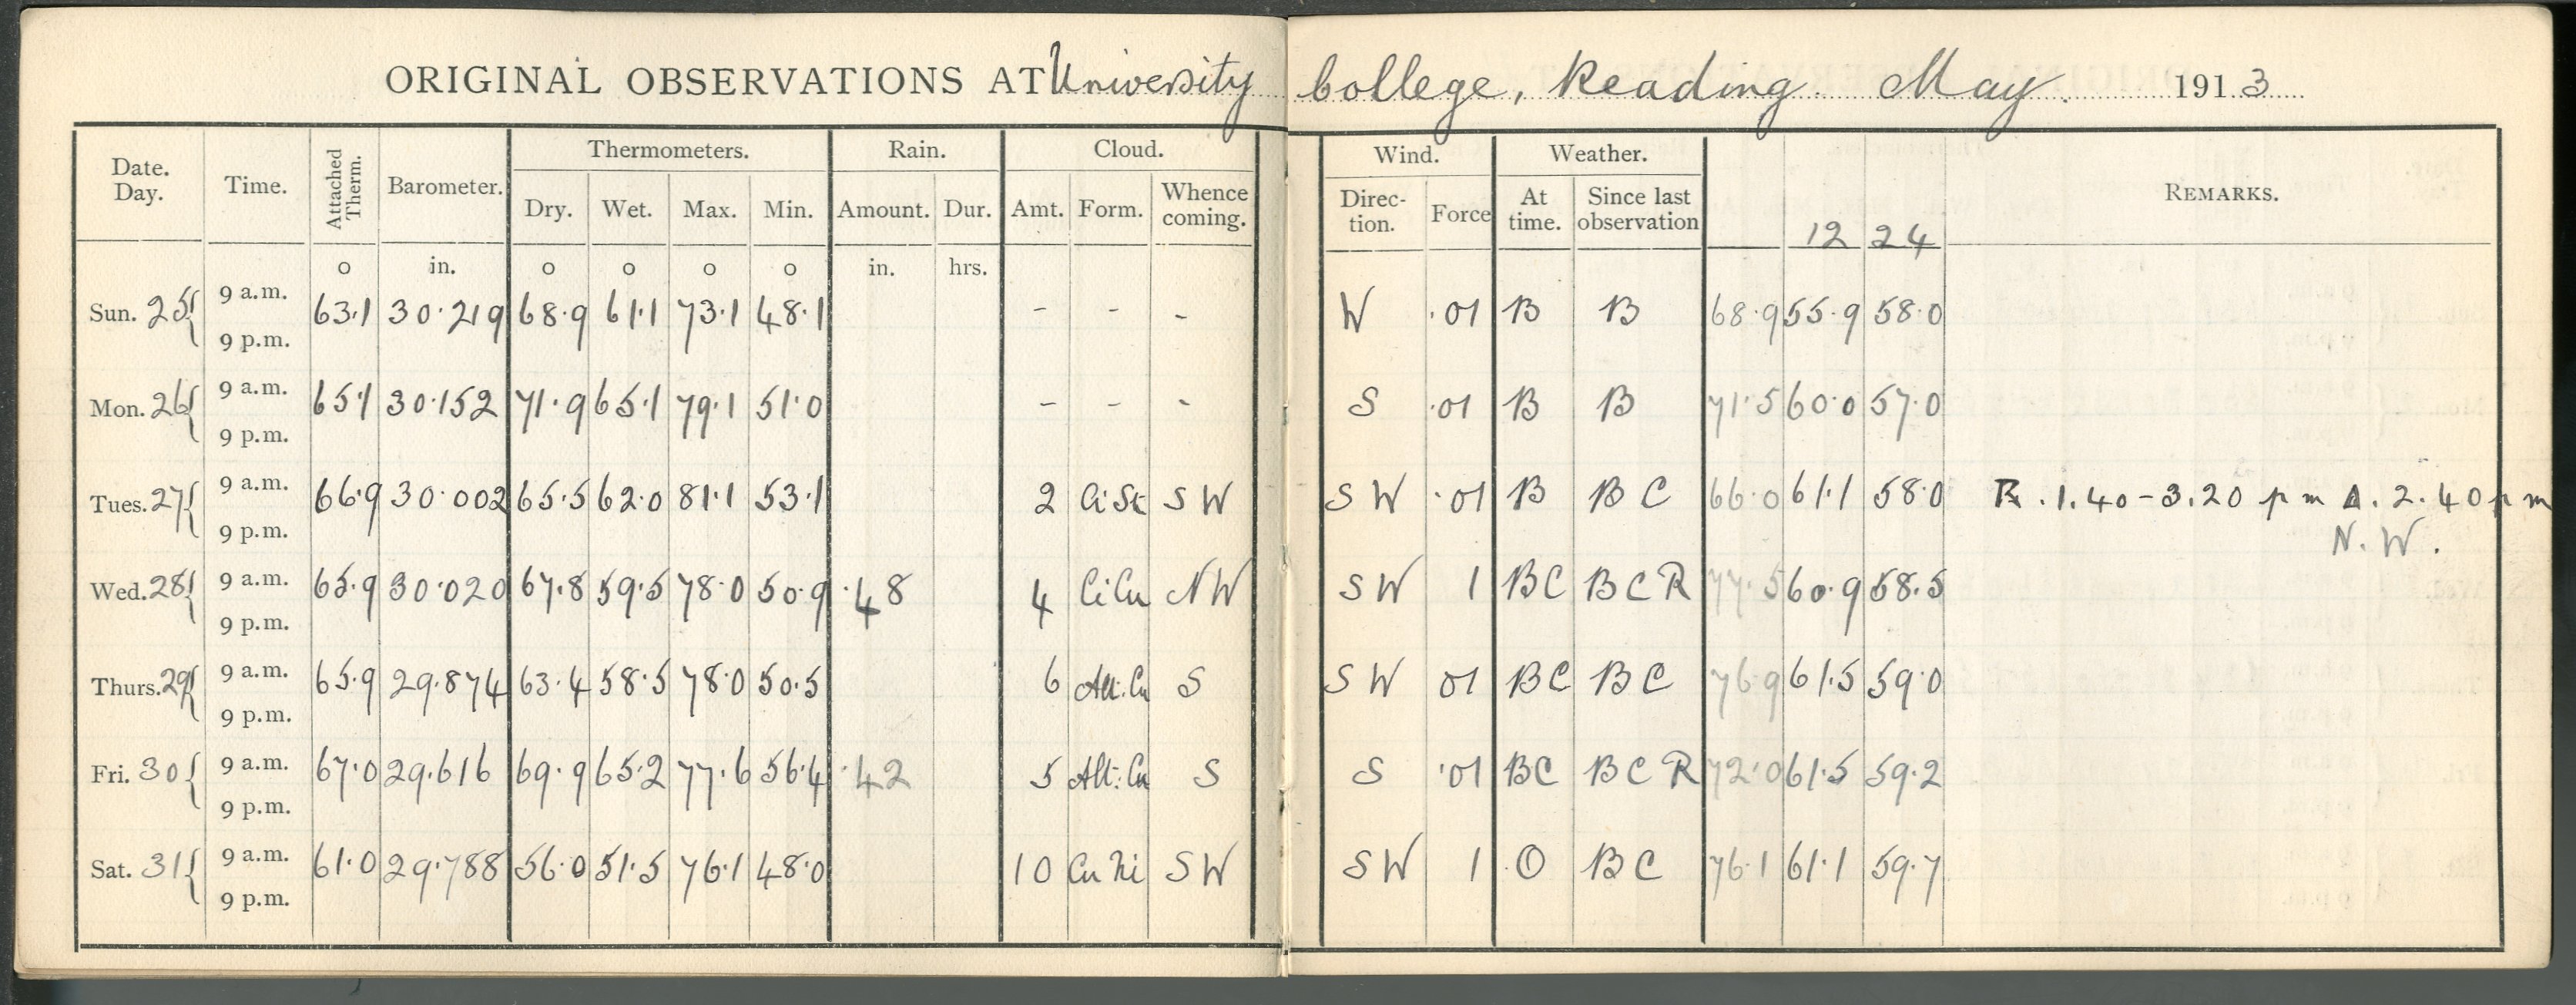 ORIGINAL OBSERVATIONS AT University College, Reading. May. 1913
Date. Day. Time. Attached Therm. Barometer. Thermometers. Rain. Cloud. Wind. Weather. REMARKS.
Dry. Wet. Max. Min. Amount. Dur. Amt. Form. Whence coming. Direc- tion. Force At time. Since last observation 12 24
o in. o o o o in. hrs.
Sun. 25 9 a.m. 63.1 30.219 68.9 61.1 73.1 48.1 - - - W .01 B B 68.9 55.9 58.0
9 p.m.
Mon. 26 9 a.m. 65.1 30.152 71.9 65.1 79.1 51.0 - - - S .01 B B 71.5 60.0 57.0
9 p.m.
Tues. 27 9 a.m. 66.9 30.002 65.5 62.0 81.1 53.1 2 Ci St S W S W .01 B B C 66.0 61.1 58.0 R. 1.40-3.20 pm 2.40 pm
9 p.m. N.W.
Wed. 28 9 a.m. 65.9 30.020 67.8 59.5 78.0 50.9 .48 4 Ci Cu N W S W 1 BC B C R 77.5 60.9 58.5
9 p.m.
Thurs. 29 9 a.m. 65.9 29.874 63.4 58.5 78.0 50.5 6 Alt. Cu S S W 01 BC B C 76.9 61.5 59.0
9 p.m.
Fri. 30 9 a.m. 67.0 29.616 69.9 65.2 77.6 56.4 .42 5 Alt. Cu S S .01 BC B C R 72.0 61.5 59.2
9 p.m.
Sat. 31 9 a.m. 61.0 29.788 56.0 51.5 76.1 48.0 10 Cu Ni S W S W 1 O B C 76.1 61.1 59.7
9 p.m.